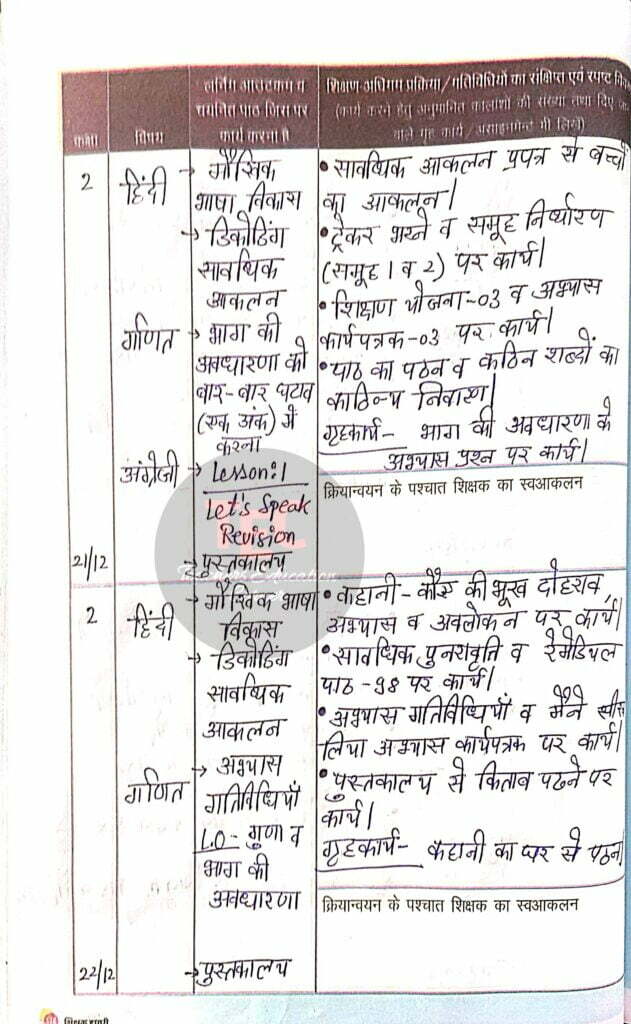 कक्षा
विषय
लर्निंग आउटकम व
चयनित पाठ जिस पर
कार्य करना है
शिक्षण अधिगम प्रक्रिया/गतिविधियों का संक्षिप्त एवं स्पष्ट
(कार्य करने हेतु अनुमानित कालांशों की संख्या तथा दिए
वाले गृह कार्य/असाइनमेन्ट भी लिखें)
2
हिंदी
→ मौखिक
भाषा विकास
→ डिकोडिंग
सावधिक
आकलन
गणित
→ भाग की
अवधारणा को
बार-बार घटाव
(एक अंक) में
करना
अंग्रेजी
→ Lesson:1
Let's Speak
Revision
21/12
→ पुस्तकालय
• सावधिक आकलन प्रपत्र से बच्चों
का आकलन।
• ट्रेकर भरने व समूह निर्धारण
(समूह 1 व 2) पर कार्य।
• शिक्षण योजना-03 व अभ्यास
कार्यपत्रक-03 पर कार्य।
• पाठ का पठन व कठिन शब्दों का
काठिन्य निवारण।
गृहकार्य- भाग की अवधारणा के
अभ्यास प्रश्न पर कार्य।
क्रियान्वयन के पश्चात शिक्षक का स्वआकलन
2
हिंदी
→ मौखिक भाषा
विकास
→ डिकोडिंग
सावधिक
आकलन
→ अभ्यास
गणित
गतिविधियाँ
L.O- गुणा व
भाग की
अवधारणा
22/12
→ पुस्तकालय
• कहानी- कौए की भूख दोहराव,
अभ्यास व अवलोकन पर कार्य।
• सावधिक पुनरावृति व रेमेडियल
पाठ -98 पर कार्य।
• अभ्यास गतिविधियाँ व मैंने सीख
लिया अभ्यास कार्यपत्रक पर कार्य।
• पुस्तकालय से किताब पढने पर
कार्य।
गृहकार्य- कहानी का घर से पठन।
क्रियान्वयन के पश्चात शिक्षक का स्वआकलन
शिक्षक डायरी